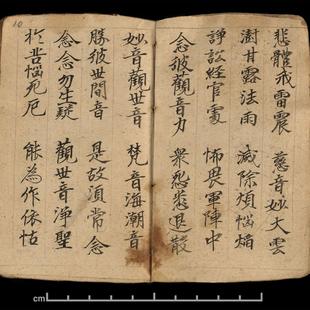 悲體戒雷震 慈音妙大雲
澍甘露法雨 滅除煩惱焰
諍訟經官處 怖畏軍陣中
念彼觀音力 衆怨悉退散
妙音觀世音 梵音海潮音
勝彼世間音 是故須常念
念念勿生疑 觀世音淨聖
扵苦惱死厄 能為作依怙
10
cm